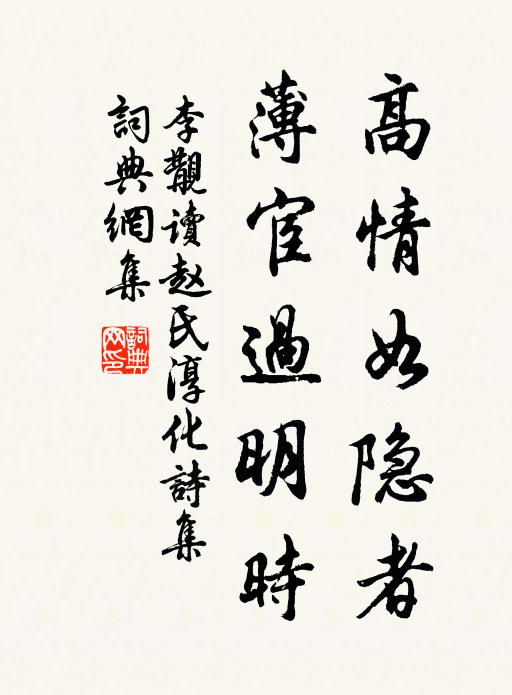 高情如隐者
薄宦過明時
李觀讀赵氏淳化詩集
詞典網集
詞典網印